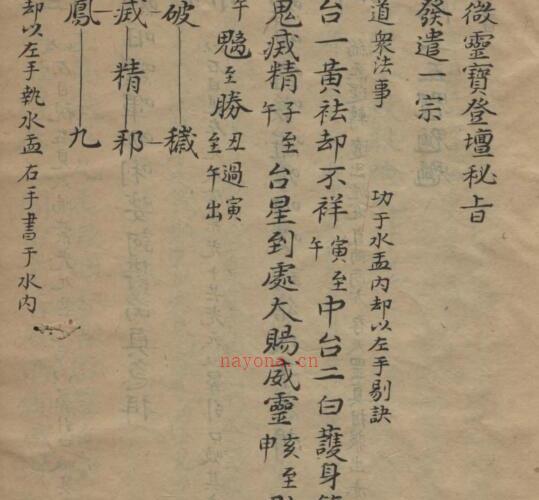 微靈寶登壇秘旨
發遣一宗
道衆法事 功于水盂内却以左手剔訣
台一黃袪却不祥寅至午中台二白護身
鬼滅精子至午台星到處大賜威靈亥至申
午魁至勝丑過寅至午出
破 穢
滅精邪
鳳 九
却以左手執水盂右手書于水内
nayona.cn